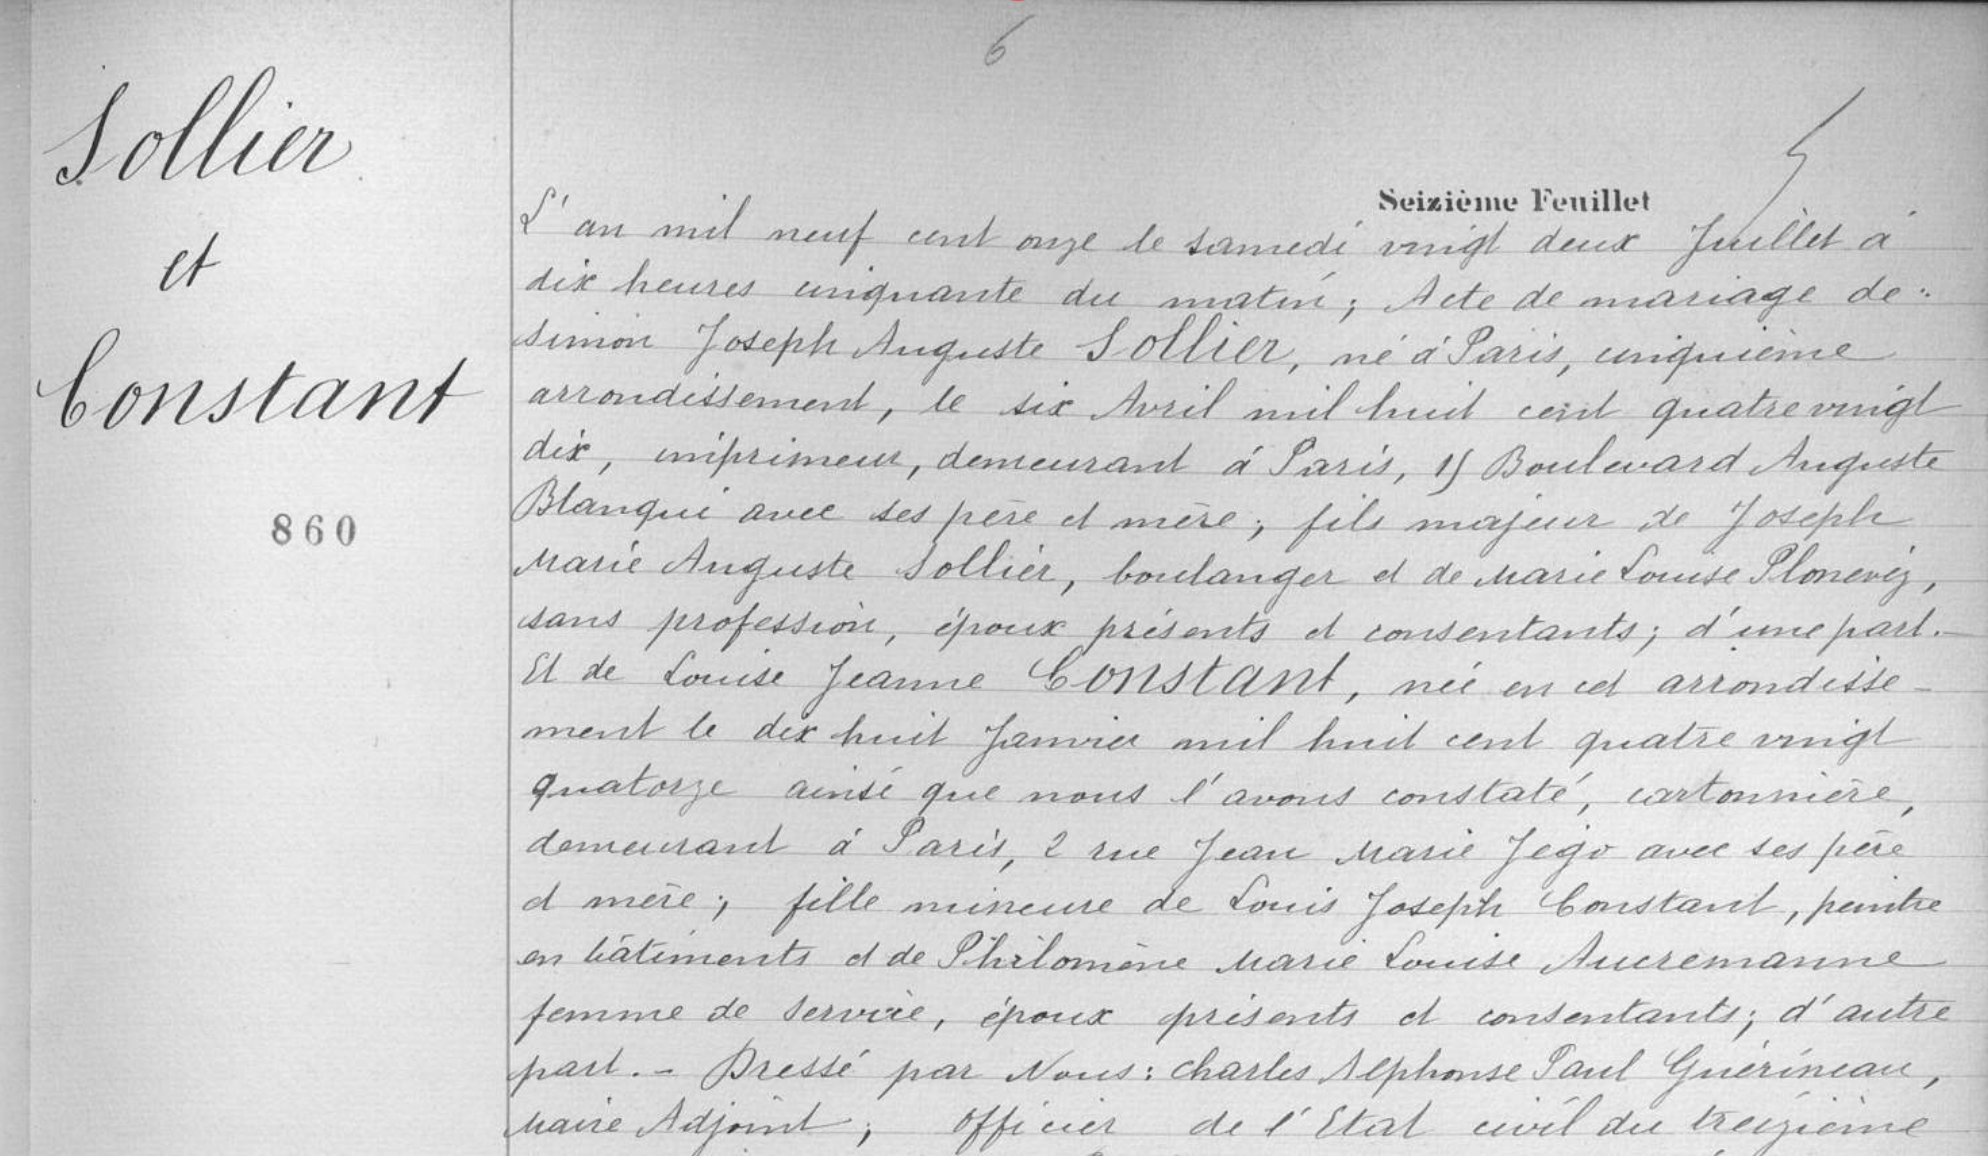 6
Sollier
et
Constant
860
Seizième Feuillet
L'an mil neuf cent onze le samedi vingt deux Juillet à
dix heures cinquante du matin ; Acte de mariage de :
Simon Joseph Auguste Sollier, né à Paris, cinquième
arrondissement, le six Avril mil huit cent quatre vingt
dix, imprimeur, demeurant à Paris, 15 Boulevard Auguste
Blanqui avec ses père et mère ; fils majeur de Joseph
Marie Auguste Sollier, boulanger et de Marie Louise Plonevez,
sans profession, époux présents et consentants ; d'une part.
Et de Louise Jeanne Constant, née en cet arrondisse-
ment le dix huit Janvier mil huit cent quatre vingt
quatorze ainsi que nous l'avons constaté, cartonnière,
demeurant à Paris, 2 rue Jean Marie Jégo avec ses père
et mère ; fille mineure de Louis Joseph Constant, peintre
en bâtiments et de Philomène Marie Louise Aucremanne
femme de service, époux présents et consentants ; d'autre
part. - Dressé par Nous : Charles Alphonse Paul Guérineau,
Maire Adjoint ; officier de l'Etat civil du treizième